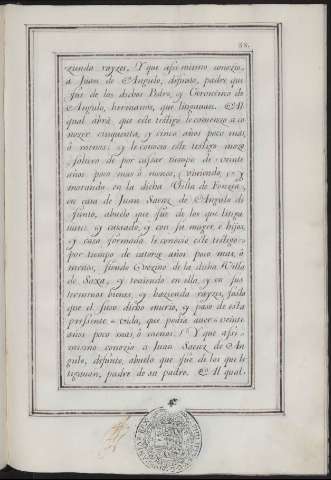 88.
zienda rayzes, Y que assi mismo conozio,
a Juan de Angulo, difunto, padre que
fue de los dichos Pedro, y Geronimo de
Angulo, hermanos, que litiganan. Al
qual abrá que este testigo le comenzo a co
nozer cinquenta, y cinco años poco mas,
ó menos: y le conozio este testigo mozo
soltero de por cassar tiempo de veinte
años poco mas ó menos, viuiendo, y
morando en la dicha Villa de Fonzea,
en casa de Juan Saenz de Angulo di
funto, abuelo que fue de los que litiga
uan: y casado, y con su muger, e hijos,
y casa formada le conozio este testigo
por tiempo de catorze años poco mas, ó
menos, siendo Vezino de la dicha Villa
de Saxa, y teniendo en ella, y en sus
terminos bienes, y hazienda rayzes, hasta
que el suso dicho murio, y paso de esta
presente vida, que podia auer veinte
años poco mas, ó menos: Y que assi
mismo conozio a Juan Saenz de An
gulo, difunto, abuelo que fue de los que li
tigauan, padre de su padre. Al qual